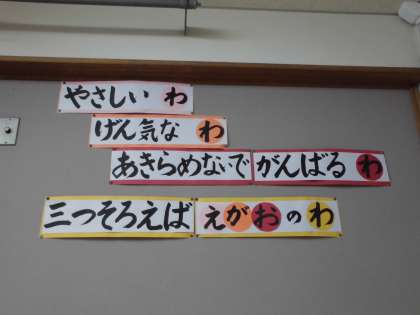 やさしい わ
げん気な わ
あきらめないで がんばる わ
三つそろえば えがおのわ